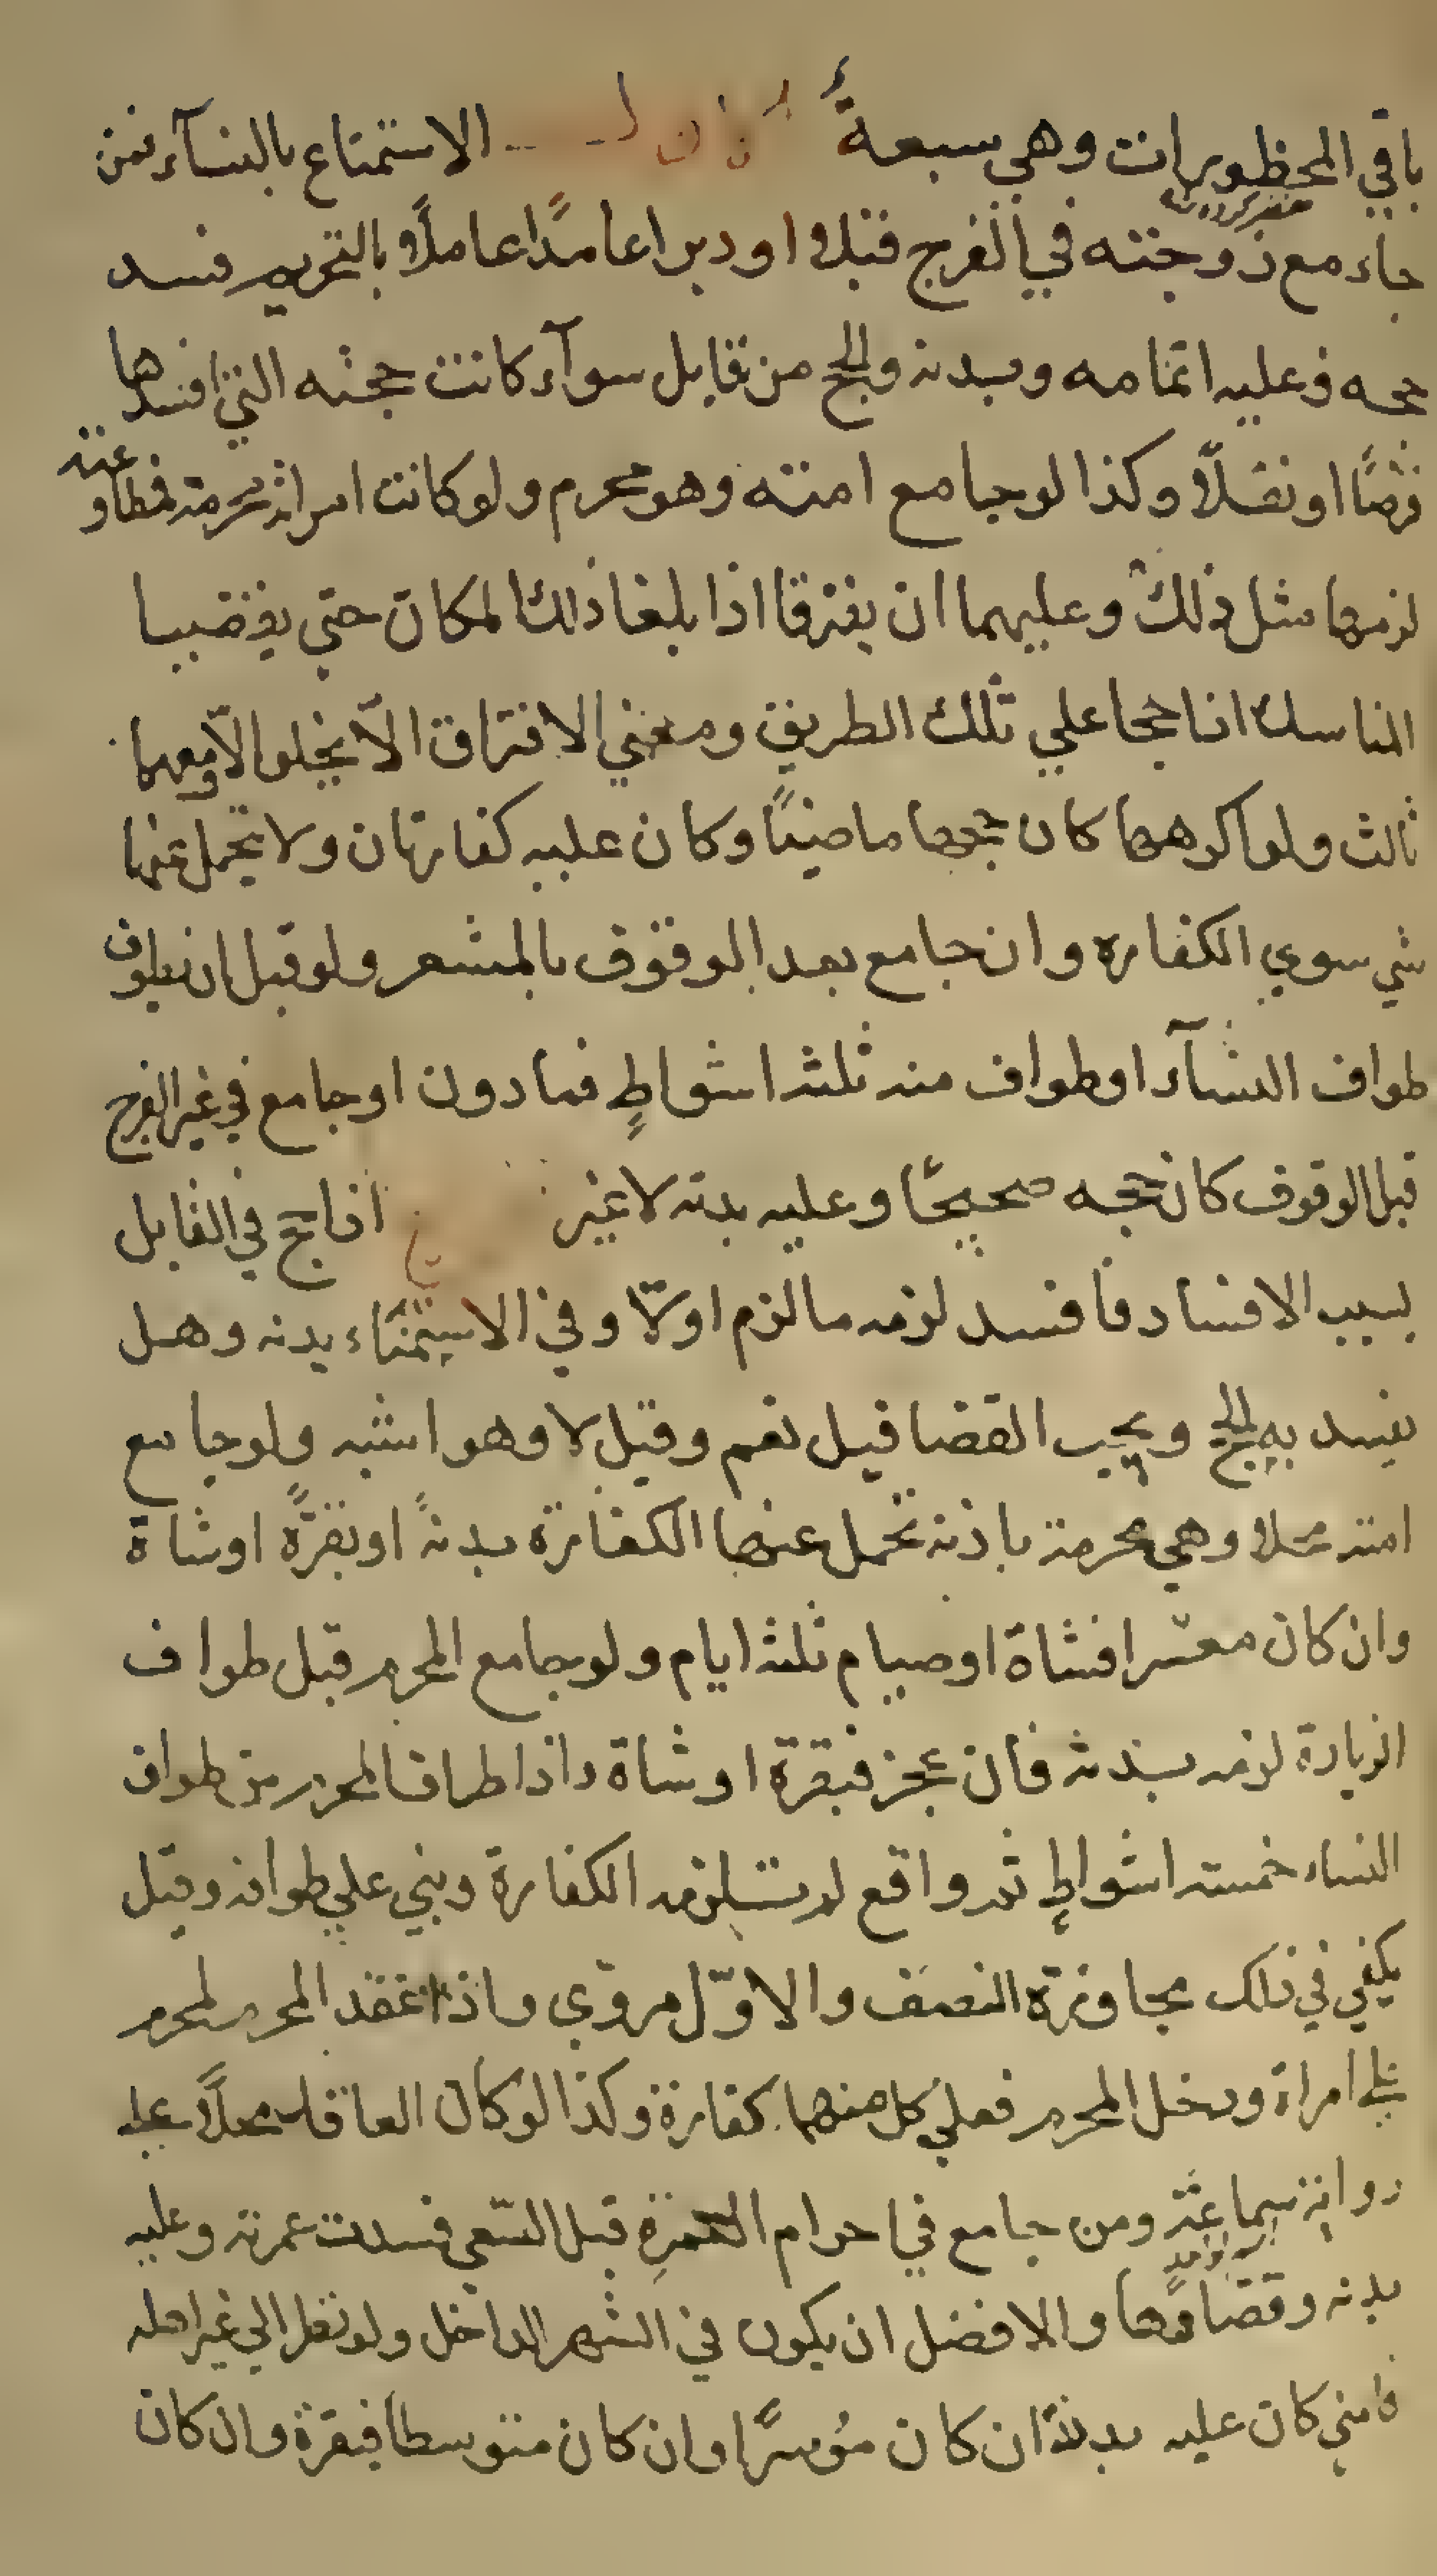 باقي المحظورات وهي سبعة الاستمتاع بالنسآء فمن
جامع زوجته في الفرج قبلا او دبرا عامدًا عاملًا بالتحريم فسد
حجه وعليه اتمامه وبدنه والحج من قابل سوآء كانت حجته التي افسدها
فرضًا او نفلًا وكذا لو جامع امته وهو محرم ولو كانت امراته محرمة مطاوعته
لزمها مثل ذلك وعليهما ان يفترقا اذا بلغا ذلك المكان حتي يقضيا
المناسك اذا حجا علي تلك الطريق ومعني الافتراق الّا يخلوا الّا ومعهما
ثالث ولو اكرهها كان حجها ماضيًا وكان عليه كفارتان ولا يتحمل عنها
شي سوي الكفاره وان جامع بعد الوقوف بالمشعر ولو قبل ان يطوف
طواف النسآء او طواف منه ثلثه اشواطٍ فما دون او جامع في غير الفرج
قبل الوقوف كان حجه صحيحًا وعليه بدنه لا غير اذا حج في القابل
بسبب الافساد فافسد لزمه ما لزم اولًا وفي الاستمناء بدنه وهل
يفسد به الحج ويجب القضا قيل نعم وقيل لا وهو اشبه ولو جامع
امته محلا وهي محرمة باذنه تحمل عنها الكفارة بدنةً او بقرةً او شاة
وان كان معسرا فشاة او صيام ثلثه ايام ولو جامع المحرم قبل طواف
الزيارة لزمه بدنه فان عجز فبقرة او شاة واذا طاف المحرم من طواف
النساء خمسته اشواطٍ ثم واقع لم تلزمه الكفارة وبني علي طوافه وقيل
يكفي في ذلك مجاوزة النصف والاوّل مروي واذا عقد المحرم لمحرم
علي امراة ودخل المحرم فعلي كل منهما كفارة وكذا لو كان العاقد محلًا علي
رواية سماعة ومن جامع في احرام العمرة قبل السّعي فسدت عمرته وعليه
بدنه وقضاؤها والافضل ان يكون في الشهر الداخل ولو نظر الي غير اهله
فامني كان عليه بدنة ان كان مُوسرًا وان كان متوسطا فبقرة وان كان